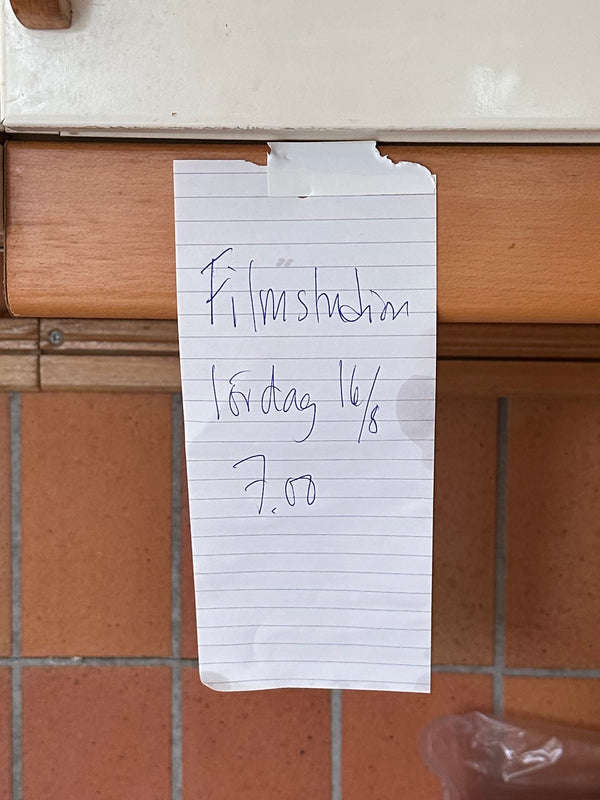 Filmstudion
lördag 16/8
7.00